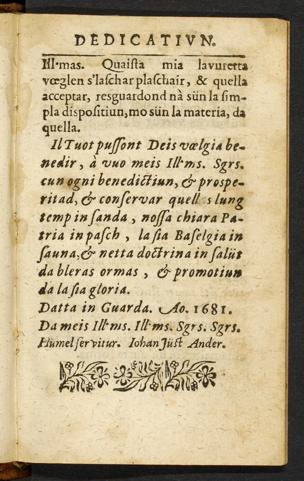 DEDICATIVN.
Ill·mas. Quaista mia lavuretta
vœglen s'laschar plaschair, & quella
acceptar, resguardond nà sün la sim-
pla dispositiun, mo sün la materia, da
quella.
Il Tuot pussont Deis vœlgia be-
nedir, à vuo meis Ill·ms. Sgrs.
cun ogni benedictiun, & prospe-
ritad, & conservar quells lung
temp in sanda, nossa chiara Pa-
tria in pasch, la sia Baselgia in
sauna, & netta doctrina in salüt
da bleras ormas, & promotiun
da la sia gloria.
Datta in Guarda. Ao. 1681.
Da meis Ill·ms. Ill·ms. Sgrs. Sgrs.
Hümel servitur. Iohan Jüst Ander.